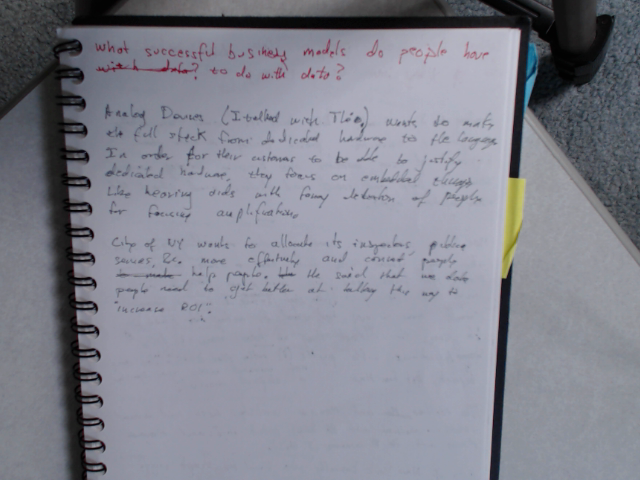 what successful business models do people have
with data? to do with data?
Analog Devices (I talked with Théo) wants to make
the full stack from dedicated hardware to the language
In order for their customers to be able to justify
dedicated hardware, they focus on embedded
Like hearing aids with detection of people
for focusing amplification
City of NY wants to allocate its inspectors, police
services, &c. more effectively and
to make help people. He said that we data
people need to get better at talking the way to
"increase ROI".